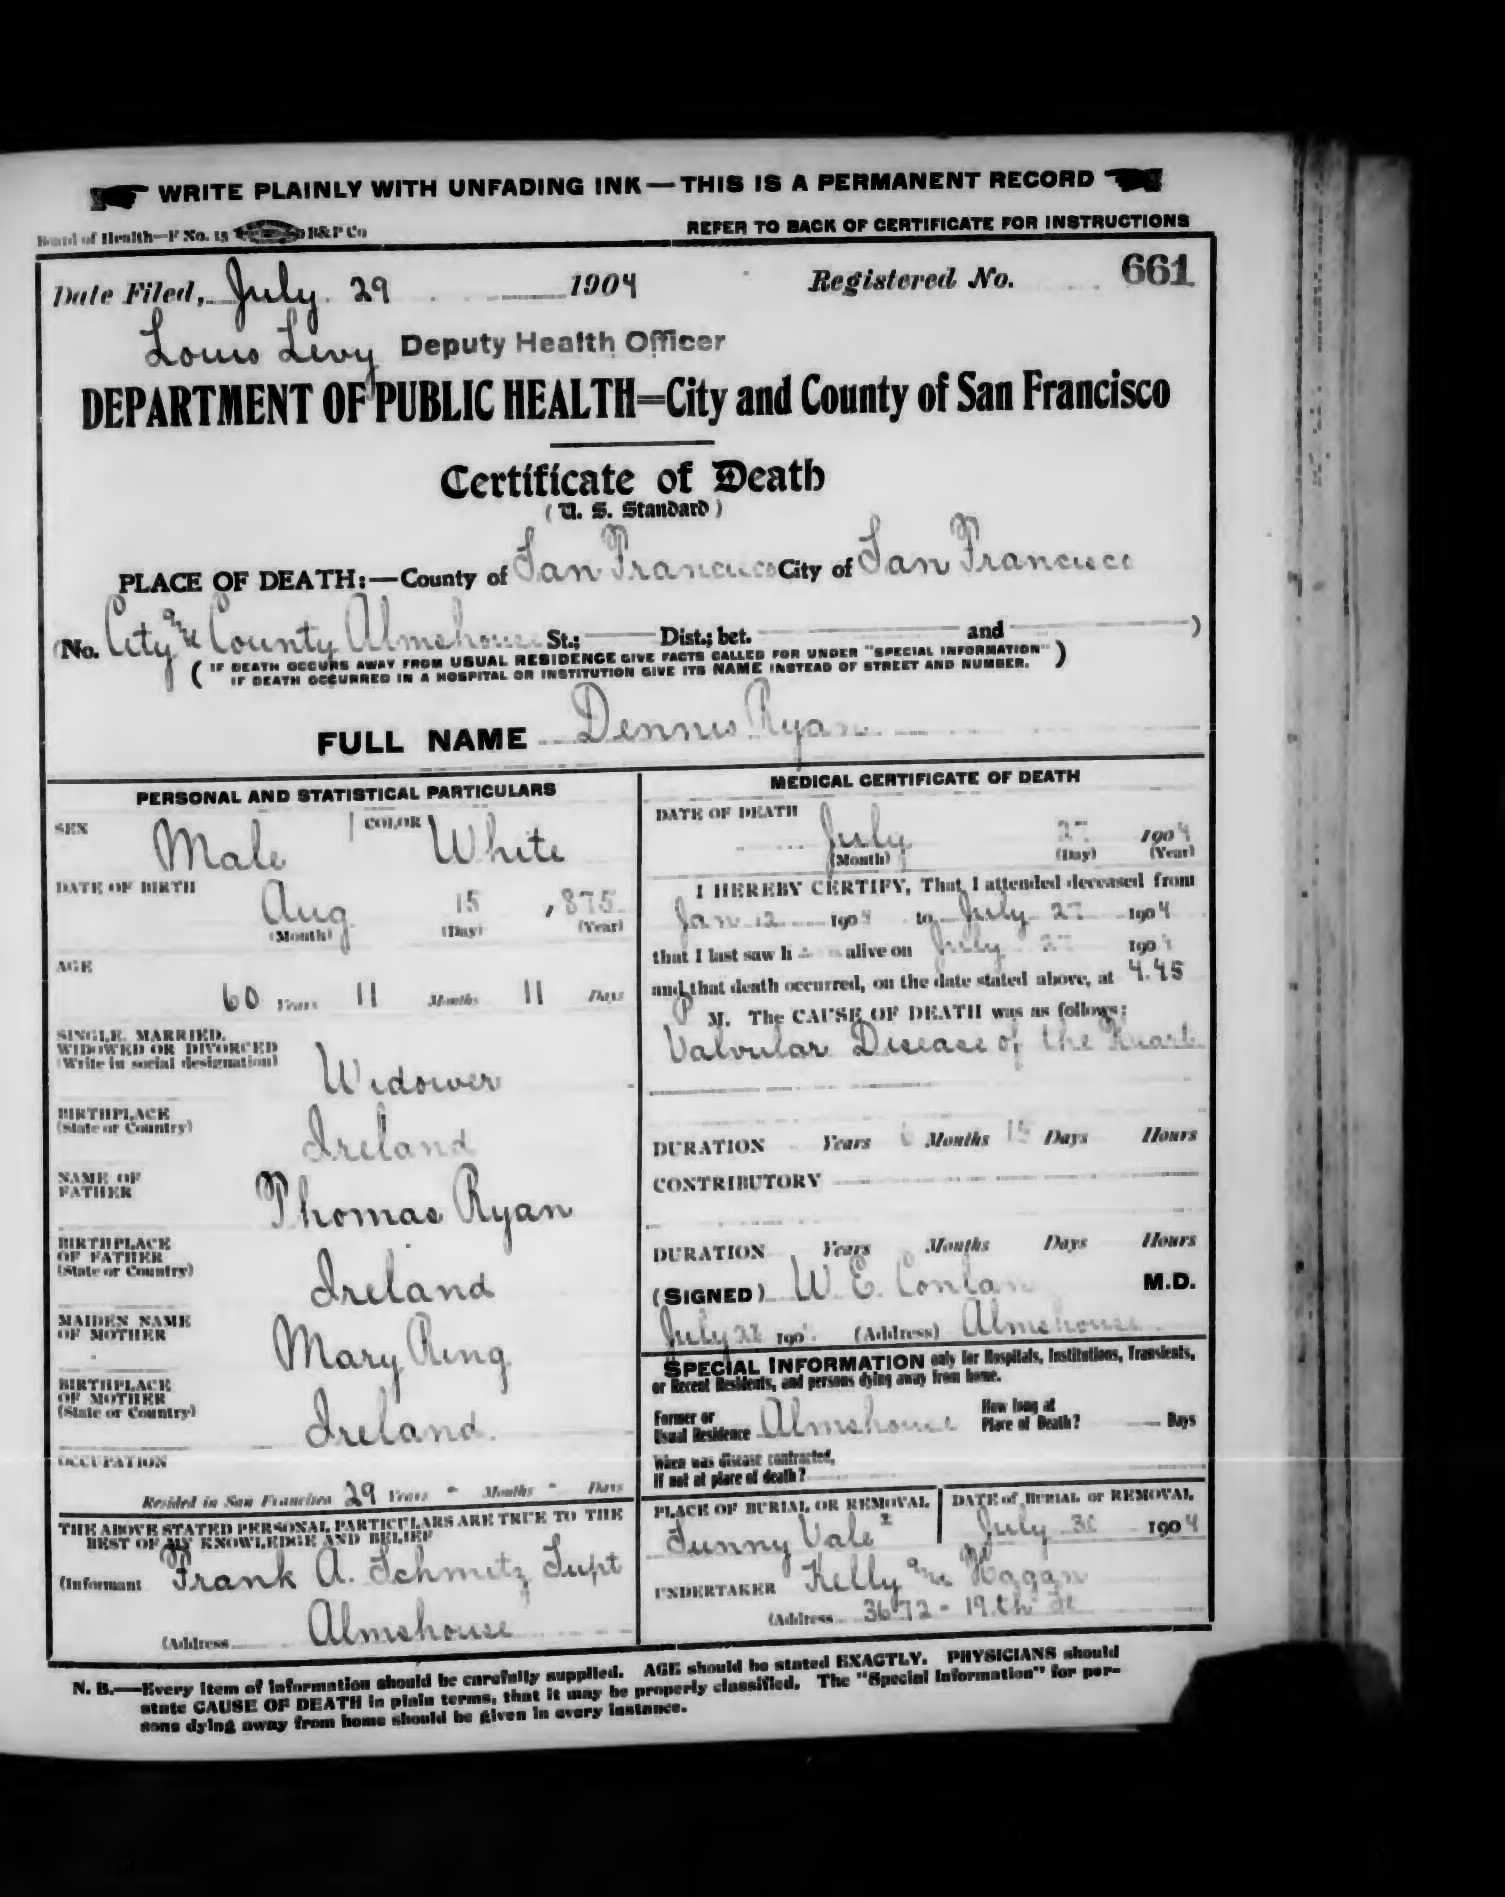 WRITE PLAINLY WITH UNFADING INK — THIS IS A PERMANENT RECORD
Board of Health—F No. 15 B&P Co REFER TO BACK OF CERTIFICATE FOR INSTRUCTIONS
Date Filed, July 29 1904 Registered No. 661
Louis Levy Deputy Health Officer
DEPARTMENT OF PUBLIC HEALTH=City and County of San Francisco
Certificate of Death
(U. S. Standard)
PLACE OF DEATH:—County of San Francisco City of San Francisco
(No. City and County Almshouse St.; Dist.; bet. and )
( IF DEATH OCCURS AWAY FROM USUAL RESIDENCE GIVE FACTS CALLED FOR UNDER "SPECIAL INFORMATION" )
IF DEATH OCCURRED IN A HOSPITAL OR INSTITUTION GIVE ITS NAME INSTEAD OF STREET AND NUMBER.
FULL NAME Dennis Ryan
PERSONAL AND STATISTICAL PARTICULARS
SEX Male COLOR White
DATE OF BIRTH Aug 15 , 875
(Month) (Day) (Year)
AGE
60 Years 11 Months 11 Days
SINGLE, MARRIED,
WIDOWED OR DIVORCED
(Write in social designation) Widower
BIRTHPLACE
(State or Country) Ireland
NAME OF
FATHER Thomas Ryan
BIRTHPLACE
OF FATHER
(State or Country) Ireland
MAIDEN NAME
OF MOTHER Mary Ring
BIRTHPLACE
OF MOTHER
(State or Country) Ireland
OCCUPATION
Resided in San Francisco 29 Years - Months - Days
THE ABOVE STATED PERSONAL PARTICULARS ARE TRUE TO THE
BEST OF MY KNOWLEDGE AND BELIEF
(Informant Frank A. Schmitz Supt
(Address Almshouse
MEDICAL CERTIFICATE OF DEATH
DATE OF DEATH July 27 1904
(Month) (Day) (Year)
I HEREBY CERTIFY, That I attended deceased from
Jan 12 1904 to July 27 1904
that I last saw h alive on July 27 1904
and that death occurred, on the date stated above, at 4.45
P M. The CAUSE OF DEATH was as follows:
Valvular Disease of the Heart
DURATION Years 6 Months 15 Days Hours
CONTRIBUTORY
DURATION Years Months Days Hours
(SIGNED) W. E. Conlan M.D.
July 28 190 (Address) Almshouse
SPECIAL INFORMATION only for Hospitals, Institutions, Transients,
or Recent Residents, and persons dying away from home.
Former or
Usual Residence Almshouse How long at
Place of Death? Days
When was disease contracted,
If not at place of death?
PLACE OF BURIAL OR REMOVAL DATE of BURIAL or REMOVAL
Sunny Vale July 30 1904
UNDERTAKER Kelly and Hagan
(Address 3672 - 19th St
N. B.—Every item of information should be carefully supplied. AGE should be stated EXACTLY. PHYSICIANS should
state CAUSE OF DEATH in plain terms, that it may be properly classified. The "Special Information" for per-
sons dying away from home should be given in every instance.